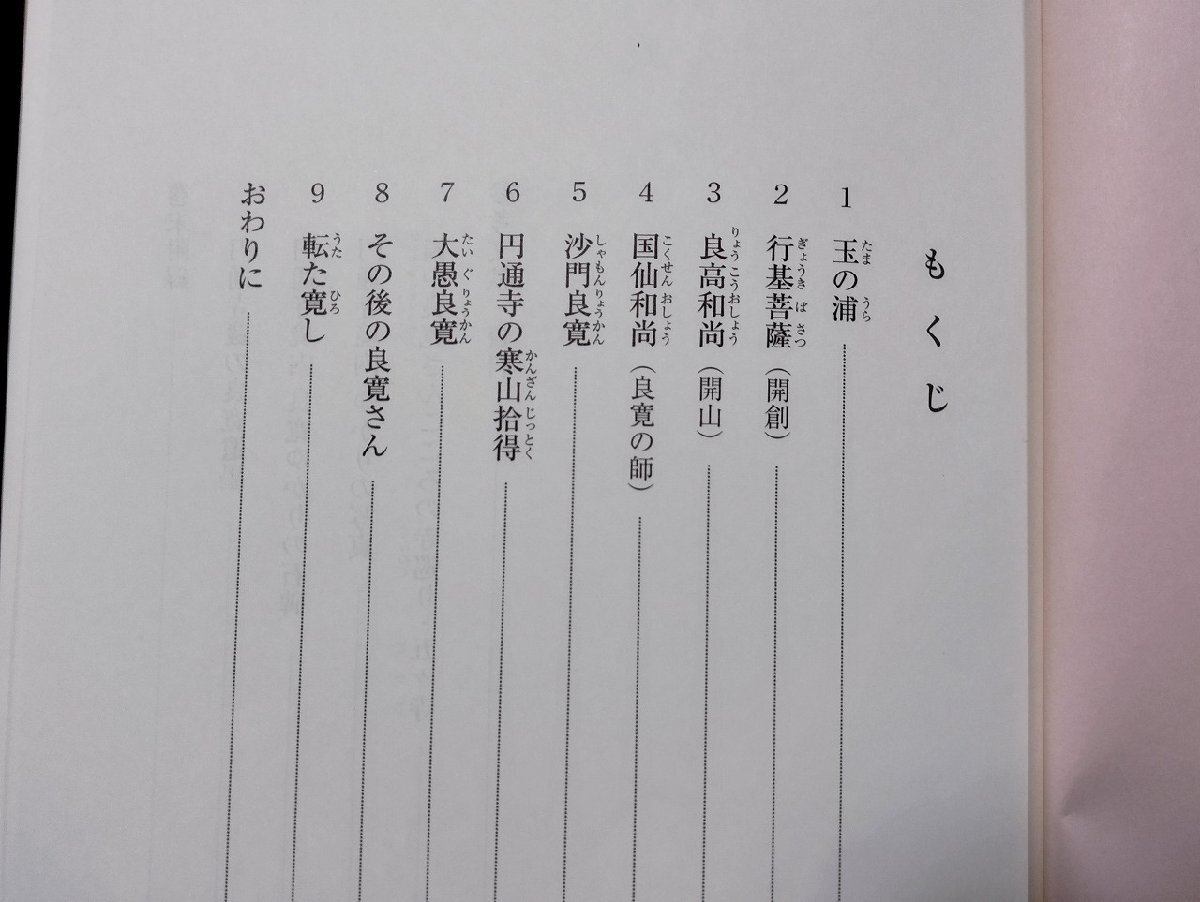 もくじ
1 玉の浦
2 行基菩薩(開創)
3 良高和尚(開山)
4 国仙和尚(良寛の師)
5 沙門良寛
6 円通寺の寒山拾得
7 大愚良寛
8 その後の良寛さん
9 転た寛し
おわりに